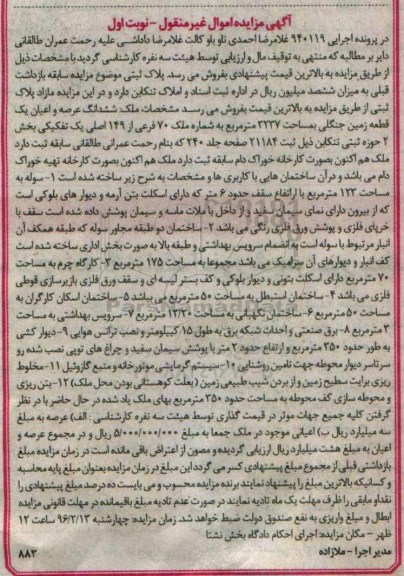 آگهی مزایده اموال غیر منقول - نوبت اول
در پرونده اجرایی ۹۴۰۱۱۹ غلامرضا احمدی ناو باو کالت غلامرضا داداشی علیه رحمت عمران طالقانی
دایر بر مطالبه که منتهی به توقیف مال و ارزیابی توسط هیئت سه نفره کارشناسی گردید با مشخصات ذیل
از طریق مزایده به بالاترین قیمت پیشنهادی بفروش می رسد. پلاک ثبتی موضوع مزایده سابقه بازداشت
قبلی به میزان ششصد میلیون ریال در اداره ثبت اسناد و املاک تنکابن دارد و در این مزایده مازاد پلاک
ثبتی از طریق مزایده به بالاترین قیمت بفروش می رسد. مشخصات ملک: ششدانگ عرصه و اعیان یک
قطعه زمین جنگلی بمساحت ۳۲۳۷ مترمربع به شماره ملک ۷۰ فرعی از ۱۴۹ اصلی یک تفکیکی بخش
۲ حوزه ثبتی تنکابن ذیل ثبت ۲۱۱۸۴ صفحه جلد ۲۴۰ که بنام رحمت عمرانی طالقانی سابقه ثبت دارد
ملک هم اکنون بصورت کارخانه خوراک دام سابقه ثبت دارد ملک هم اکنون بصورت کارخانه تهیه خوراک
دام می باشد و در آن ساختمان هایی با کاربری ها و مشخصات به شرح زیر ساخته شده است ۱- سوله به
مساحت ۱۲۳ مترمربع با ارتفاع سقف حدود ۶ متر که دارای اسکلت بتن آرمه و دیوار های بلوکی است
که از بیرون دارای نمای سیمان سفید و از داخل با ملات ماسه و سیمان پوشش داده شده است سقف با
خرپای فلزی و پوشش ورق فلزی رنگی می باشد ۲- ساختمان دو طبقه مجاور سوله که طبقه همکف آن
انبار مرتبط با سوله است به انضمام سرویس بهداشتی و طبقه بالا به صورت بخش اداری ساخته شده است
کف انبار و دیوارهای آن سرامیک می باشد مجموعا به مساحت ۱۷۵ مترمربع ۳- کارگاه چرم به مساحت
۷۰ مترمربع دارای اسکلت بتونی و دیوار بلوکی و کف بستر لیسه ای و سقف ورق فلزی بازیرسازی قوطی
فلزی می باشد ۴- ساختمان اسطبل به مساحت ۵۰ مترمربع می باشد ۵- ساختمان اسکان کارگران به
مساحت ۵۰ مترمربع ۶- ساختمان نگهبانی به مساحت ۱۲/۲۰ مترمربع ۷- سرویس بهداشتی به مساحت
۳ مترمربع ۸- برق صنعتی و احداث شبکه برق به طول ۱۵ کیلومتر و نصب ترانس هوایی ۹- دیوار کشی
به طور حدود ۳۵۰ مترمربع و ارتفاع حدود ۲ متر با پوشش سیمان سفید و چراغ های توپی نصب شده رو
سرتاسر دیوار محوطه جهت تامین روشنایی ۱۰- سیستم گرمایشی موتور خانه و منبع گازوئیل ۱۱- مخلوط
ریزی برایت سطیح زمین و از بردن شیب طبیعی زمین (بعلت کوهستانی بودن محل ملک) ۱۲- بتن ریزی
و محوطه سازی کف محوطه به مساحت حدود ۳۵۰ مترمربع بهای ملک یاد شده در حال حاضر با در نظر
گرفتن کلیه جمیع جهات موثر در قیمت گذاری توسط هیئت سه نفره کارشناسی: الف) عرصه به مبلغ
سه میلیارد ریال ب) اعیانی موجود در ملک جمعا به مبلغ ۵/۰۰۰/۰۰۰/۰۰۰ ریال و در مجموع عرصه و
اعیان به مبلغ هشت میلیارد ریال ارزیابی گردیده و مصون از اعتراض باقی مانده است در زمان مزایده مبلغ
بازداشتی قبلی از مجموع مبلغ پیشنهادی کسر می گردد این مبلغ در زمان مزایده بعنوان مبلغ پایه محاسبه
و کسانیکه بالاترین مبلغ را پیشنهاد نمایند برنده مزایده محسوب و می بایست ده درصد مبلغ پیشنهادی را
نقدا و مابقی را ظرف مهلت یک ماه تادیه نمایند در صورت عدم تادیه مبلغ باقیمانده در مهلت قانونی مزایده
ابطال و مبلغ واریزی به نفع صندوق دولت ضبط خواهد شد. زمان مزایده: چهارشنبه ۹۶/۲/۱۳ ساعت ۱۲
ظهر - مکان مزایده: اجرای احکام دادگاه بخش نشتا
مدیر اجرا - ملازاده
۸۸۳